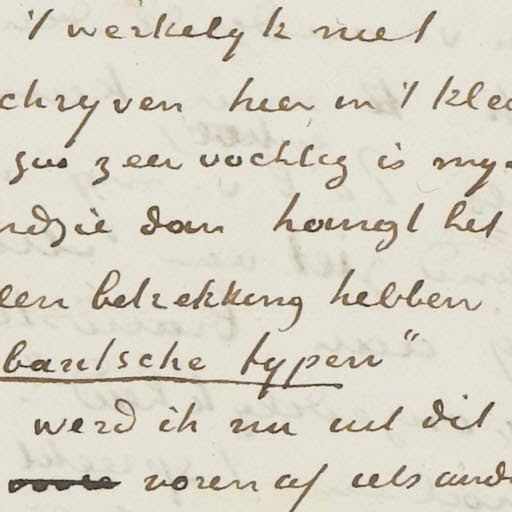 't werkelyk niet
chryven hier in 't klei
zus zeer vochtig is my
ndzie dan hangt het
een betrekking hebben
bantsche typen"
werd ik nu uit dit
voren af iets and